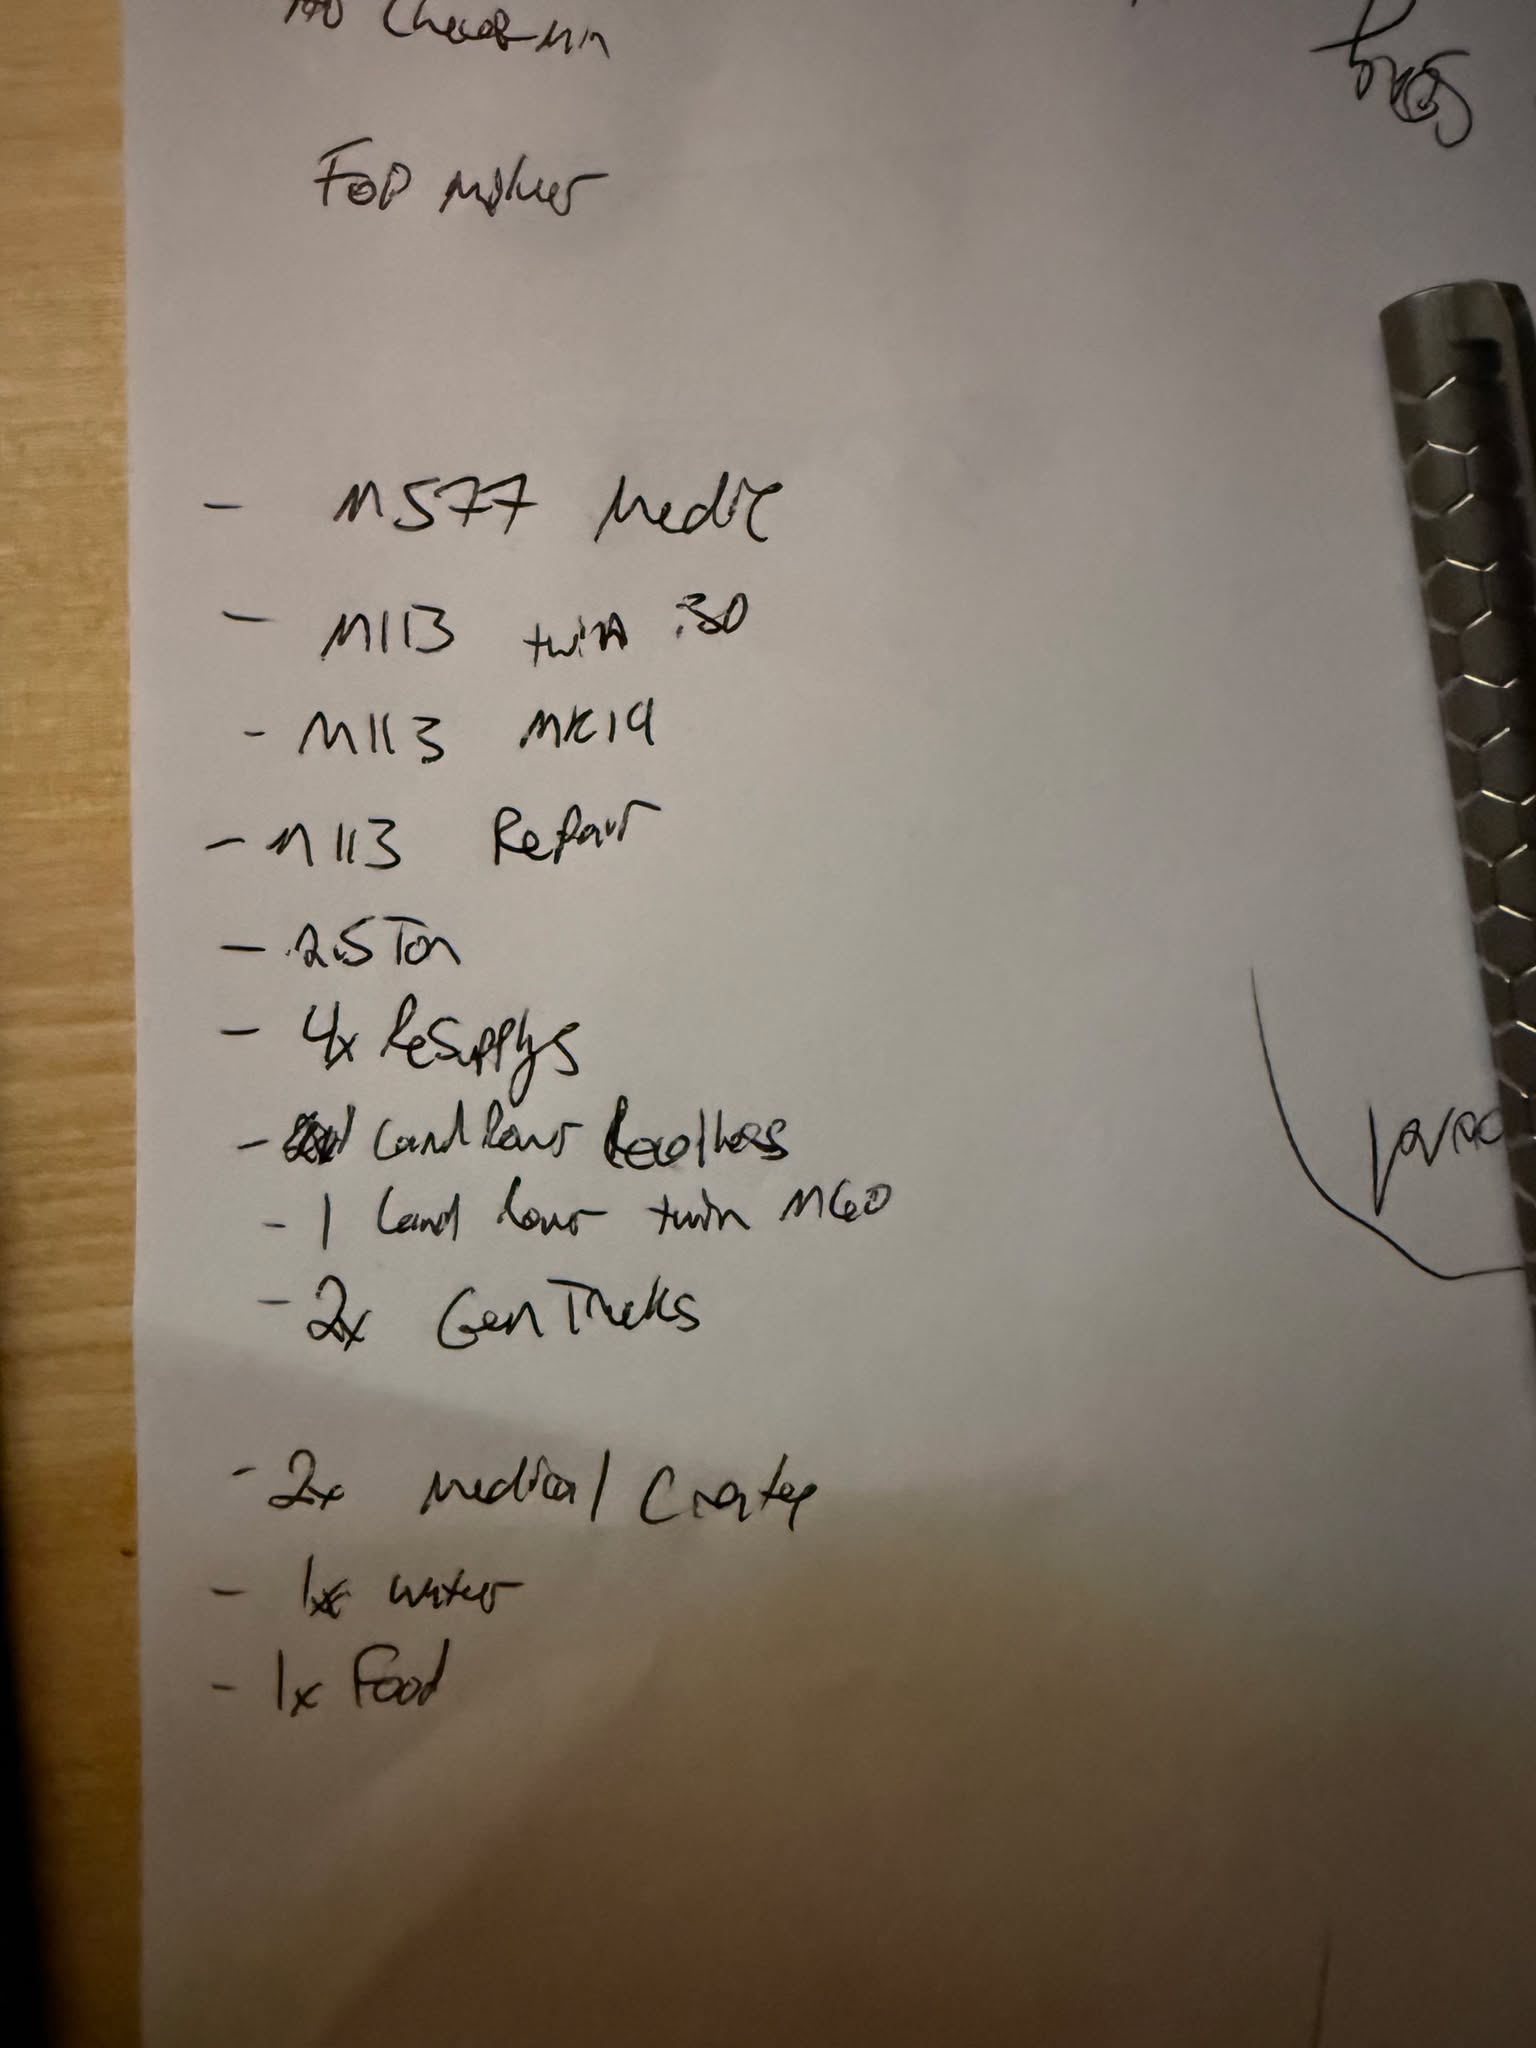 FOP
- M577 Medic
- M113 twin .30
- M113 MK19
- M113 Repair
- 2.5 Ton
- 4x Resupplys
- 1 Land Rover Recoilless
- 1 Land Rover twin M60
- 2x Gen Trucks
- 2x Medical Crates
- 1x water
- 1x Food